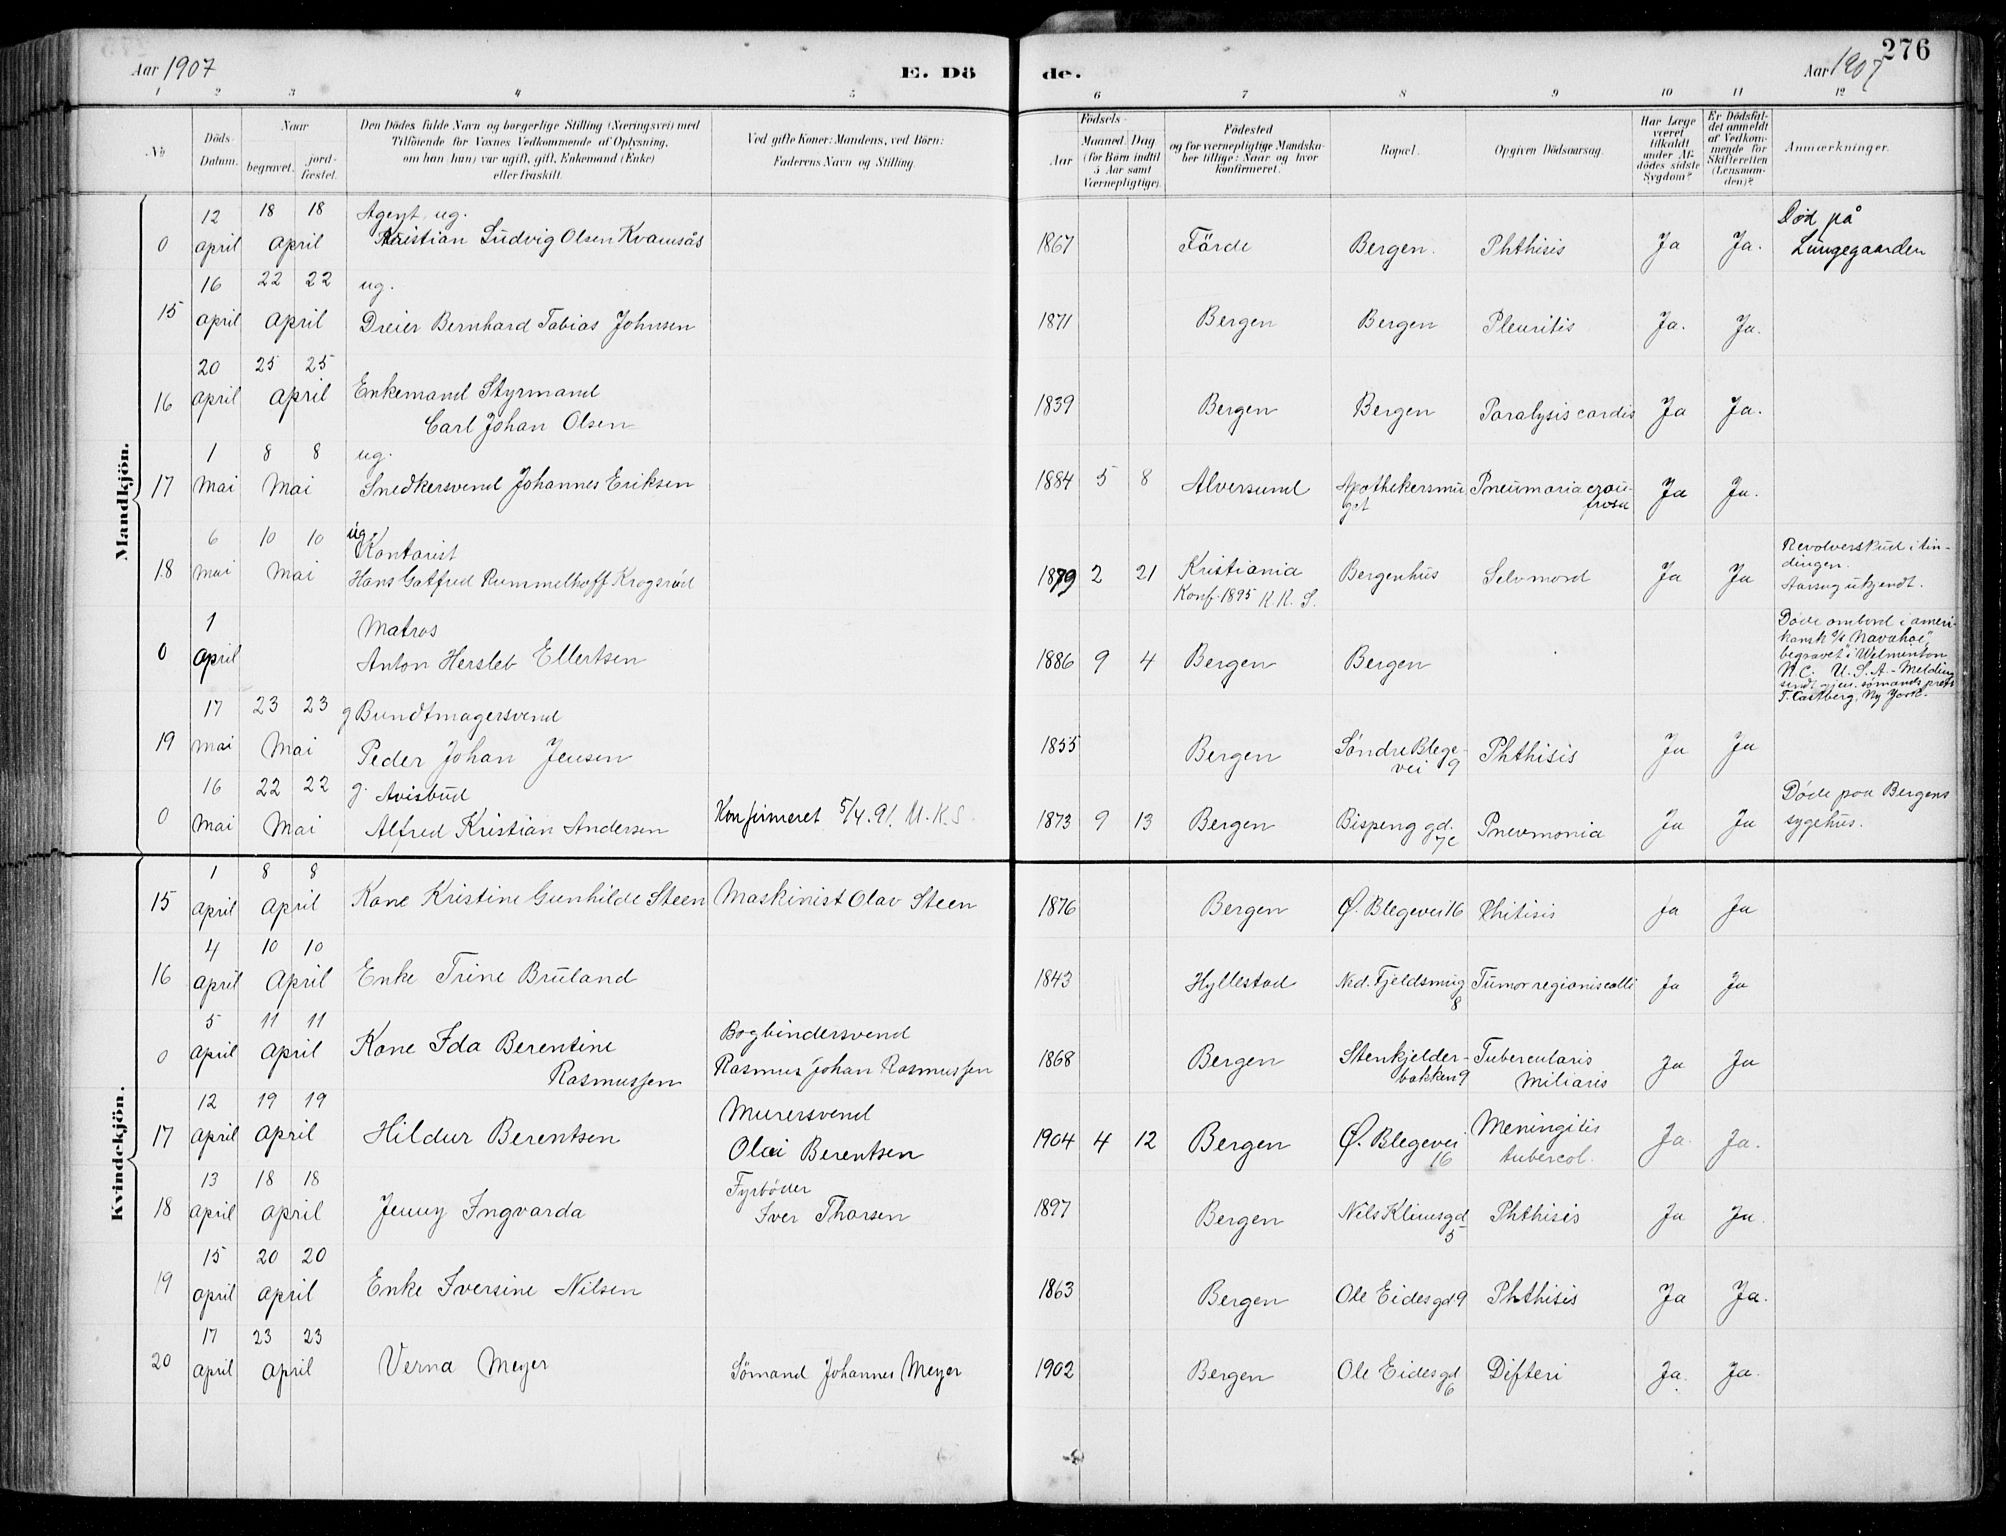 Aar 1907
E. Dö
de.
Aar 1907
276
1 2 3 4 5 6 7 8 9 10 11 12
No
Döds-
Datum.
Naar
begravet.
jord-
fæstet.
Den Dödes fulde Navn og borgerlige Stilling (Næringsvei) med
Tilföiende for Voxnes Vedkommende af Oplysning,
om han (hun) var ugift, gift, Enkemand (Enke)
eller fraskilt.
Ved gifte Koner: Mandens, ved Börn:
Faderens Navn og Stilling.
Födsels-
Aar
Maaned
Dag
(for Börn indtil
5 Aar samt
Værnepligtige).
Födested
og for værnepligtige Mandska-
ber tillige: Naar og hvor
konfirmeret.
Bopæl.
Opgiven Dödsaarsag.
Har Læge
været
tilkaldt
under Af-
dödes sidste
Sygdom?
Er Dödsfal-
det anmeldt
af Vedkom-
mende for
Skifteretten
(Lensman-
den)?
Anmærkninger.
Mandkjön.
12 18 18 Agent, ug. Död på
0 april april Kristian Ludvig Olsen Kvamsås 1867 Förde Bergen. Phthisis Ja Ja. Lungegaarden
16 22 22 ug.
15 april april Dreier Bernhard Tobias Johnsen 1871 Bergen Bergen Pleuritis Ja. Ja.
20 25 25 Enkemand Styrmand
16 april april Carl Johan Olsen 1839 Bergen Bergen Paralysis cordis Ja Ja.
1 8 8 ug.
17 Mai Mai Snedkersvend Johannes Eriksen 1884 5 8 Alversund Apothekersmu
get Pneumonia crou-
posa Ja Ja.
6 10 10 ug. Kontorist
18 Mai Mai Hans Gotfred Rummelhoff Krogsrud 1879 2 21 Kristiania
Konf. 1895 K.K. S. Bergenhus Selvmord Ja Ja Revolverskud i tin-
dingen.
Aarsag ukjendt.
1 Matros
0 april Anton Hersleb Ellertsen 1886 9 4 Bergen Bergen Döde ombord i ameri-
kansk s/s "Navahoe",
begravet i Welmenton
N.C. U.S.A. - Melding
T. Castberg, Ny York.
17 23 23 g Bundtmagersvend
19 Mai Mai Peder Johan Jensen 1855 Bergen Söndre Blege-
vei 9 Phthisis Ja Ja
16 22 22 g. Avisbud
0 Mai Mai Alfred Kristian Andersen Konfirmeret 5/4.91. U.K.S. 1873 9 13 Bergen Bispeng gd.
7c Pnevmonia Ja Ja Döde paa Bergens
sygehus.
Kvindekjön.
1 8 8
15 april april Kone Kristine Gunhilde Steen Maskinist Olav Steen 1876 Bergen Ø. Blegevei 16 Phitisis Ja Ja
4 10 10
16 april April Enke Trine Bruland 1843 Hyllestad Ned. Fjeldsmug
8 Tumor regionis colli Ja Ja
5 11 11 Bogbindersvend
0 april april Kone Ida Berentine
Rasmussen Rasmus Johan Rasmussen 1868 Bergen Stenkjelder-
bakken 9 Tubercularis
Miliaris Ja Ja
12 19 19 Murersvend
17 april april Hildur Berentsen Olai Berentsen 1904 4 12 Bergen Ø. Blegevei
16 Meningitis
tubercol. Ja. Ja.
13 18 18 Fyrböder
18 april april Jenny Ingvarda Iver Thorsen 1897 Bergen Nels Klimsgd
5 Phthisis Ja Ja.
15 20 20
19 april april Enke Iversine Nilsen 1863 Bergen Ole Eidesgd 9 Phthisis Ja Ja.
17 23 23
20 april april Verna Meyer Sömand Johannes Meyer 1902 Bergen Ole Eidesgd
6 Difteri Ja. Ja.